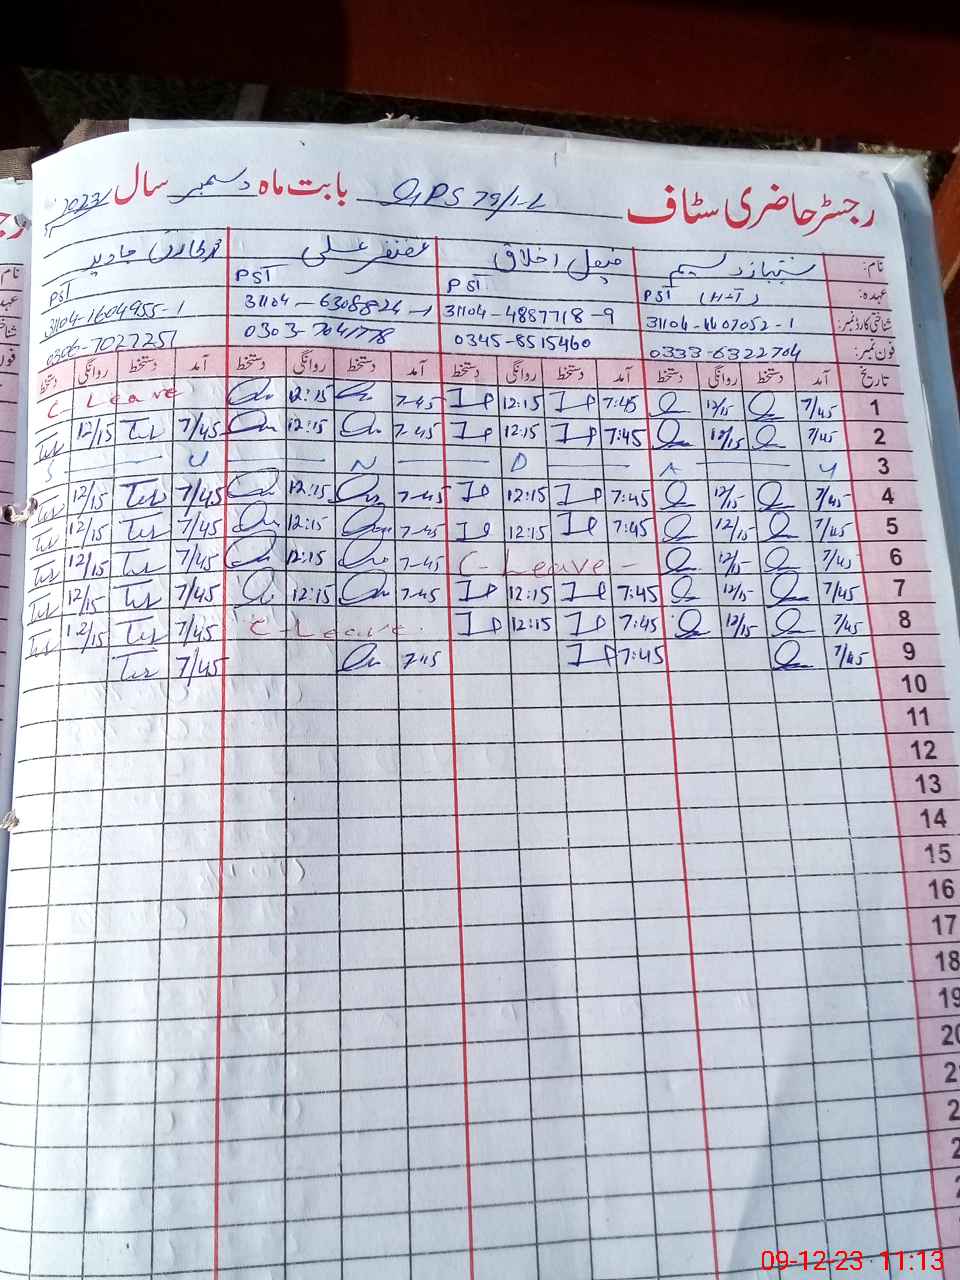 رجسٹر حاضری سٹاف GPS 79/1-L بابت ماہ دسمبر سال 2023
نام: شہباز وسیم اخلاق غضنفر علی جاوید
عہدہ: PST (H-T) PST PST PST
شناختی کارڈ نمبر: 31104-1607052-1 31104-4887718-9 31104-6308824-1 31104-1604955-1
فون نمبر: 0333-6322704 0345-8515460 0303-7041778 0306-7027251
تاریخ آمد دستخط روانگی دستخط آمد دستخط روانگی دستخط آمد دستخط روانگی دستخط آمد دستخط روانگی دستخط
1 7/45 12/15 7:45 12:15 7-45 12:15 C- Leave
2 7/45 12/15 7:45 12:15 7-45 12:15 7/45 12/15
3 S U N D A Y
4 7/45 12/15 7:45 12:15 7-45 12:15 7/45 12/15
5 7/45 12/15 7:45 12:15 7-45 12:15 7/45 12/15
6 7/45 12/15 C- Leave - 7-45 12:15 7/45 12/15
7 7/45 12/15 7:45 12:15 7-45 12:15 7/45 12/15
8 7/45 12/15 7:45 12:15 C- Leave 7/45 12/15
9 7/45 7:45 7-45 7/45
10
11
12
13
14
15
16
17
18
19
20
09-12-23 11:13